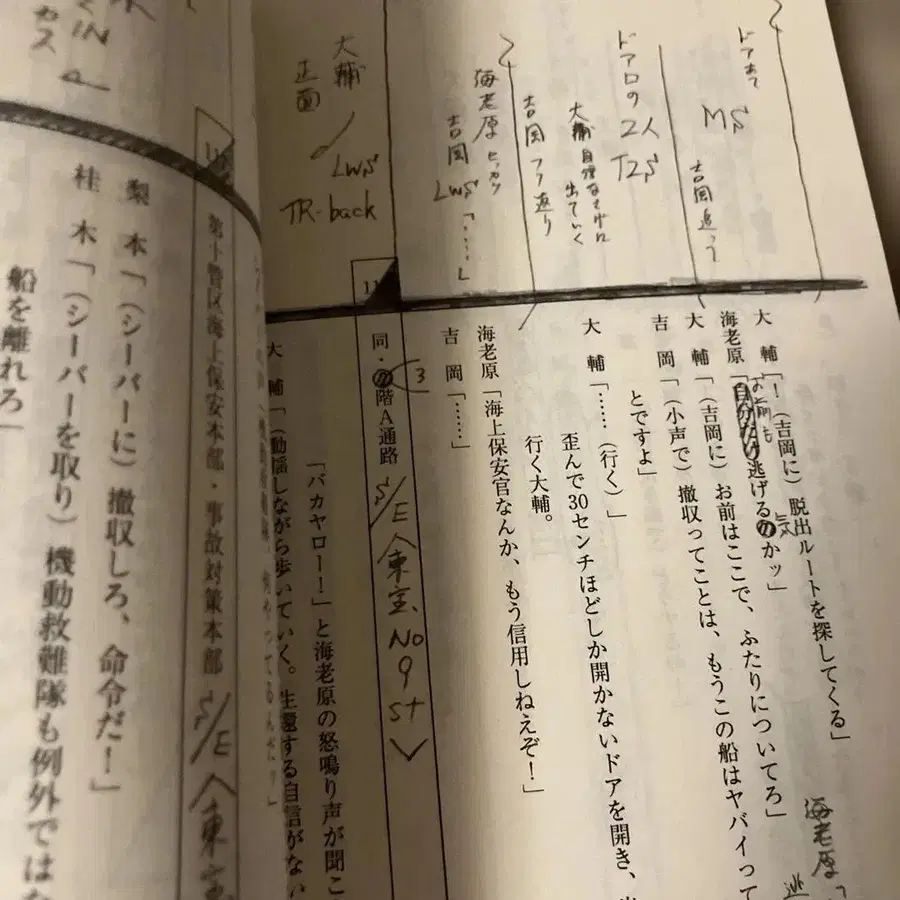 MS
吉岡追う
ドア口の2人
T2S
大輔自信なさげに
出ていく
吉岡フリ返り
海老原
吉岡 LWS「……」
大輔
正面
LWS
TR-back
大　輔「！（吉岡に）脱出ルートを探してくる」
海老原「自分だけ逃げるのかッ」
お前も
大　輔「（吉岡に）お前はここで、ふたりについてろ」
吉　岡「（小声で）撤収ってことは、もうこの船はヤバイって
とですよ」
大　輔「……（行く）」
歪んで30センチほどしか開かないドアを開き、
行く大輔。
海老原「海上保安官なんか、もう信用しねえぞ！」
吉　岡「……」
海老原「
逃
11
同・の階A通路
3
S/E 東宝 No 9 st
「バカヤロー！」と海老原の怒鳴り声が聞こ
大　輔「（動揺しながら歩いていく。生還する自信がない
IN
カス
11
第十管区海上保安本部・事故対策本部
S/E 東宝
梨　本「（シーバーに）撤収しろ、命令だ！」
桂　木「（シーバーを取り）機動救難隊も例外ではな
船を離れろ」